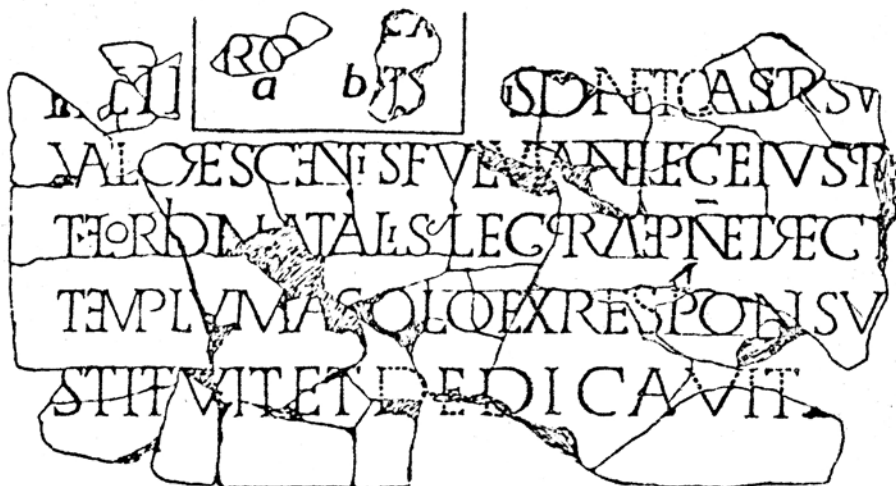 RO
a b
SDNETCASTRSV
VALCRESCENTISFVLVIANILEGEIVSPR
TFLORIDNATALISLEGPRAEPNETRECT
TEMPLVMASOLOEXRESPONSV
STITVITETDEDICAVIT